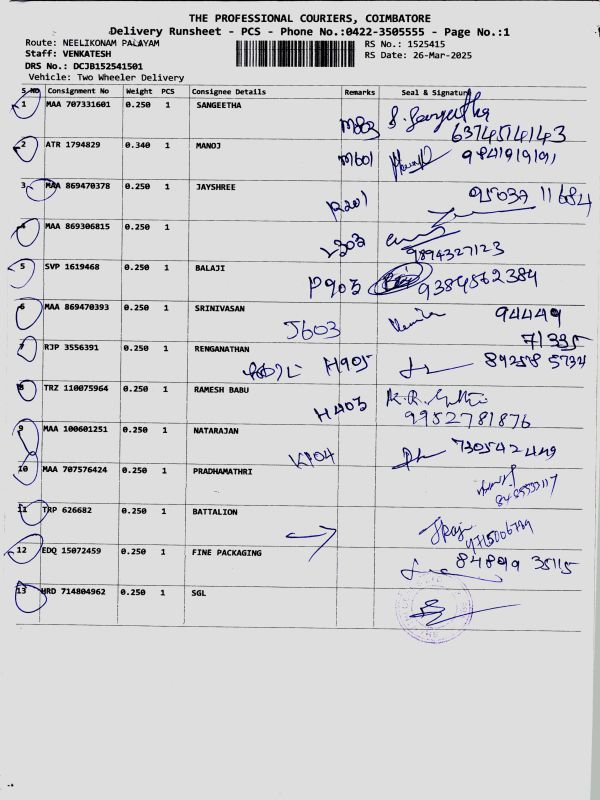 THE PROFESSIONAL COURIERS, COIMBATORE
Delivery Runsheet - PCS - Phone No.:0422-3505555 - Page No.:1
Route: NEELIKONAM PALAYAM RS No.: 1525415
Staff: VENKATESH RS Date: 26-Mar-2025
DRS No.: DCJB152541501
Vehicle: Two Wheeler Delivery
S NO Consignment No Weight PCS Consignee Details Remarks Seal & Signature
1 MAA 707331601 0.250 1 SANGEETHA M803 S. Sangeetha
6374514143
2 ATR 1794829 0.340 1 MANOJ M601 9841919191
3 MAA 869470378 0.250 1 JAYSHREE R201 95037 11684
4 MAA 869306815 0.250 1 L303
9894327123
5 SVP 1619468 0.250 1 BALAJI P903 9384562384
6 MAA 869470393 0.250 1 SRINIVASAN J603 94449
71335
7 RJP 3556391 0.250 1 RENGANATHAN H905 892585 5734
8 TRZ 110075964 0.250 1 RAMESH BABU H403 K.R.
9952781876
9 MAA 100601251 0.250 1 NATARAJAN K104 730542449
10 MAA 707576424 0.250 1 PRADHAMATHRI
11 TRP 626682 0.250 1 BATTALION
12 EDQ 15072459 0.250 1 FINE PACKAGING 84899 35115
13 HRD 714804962 0.250 1 SGL